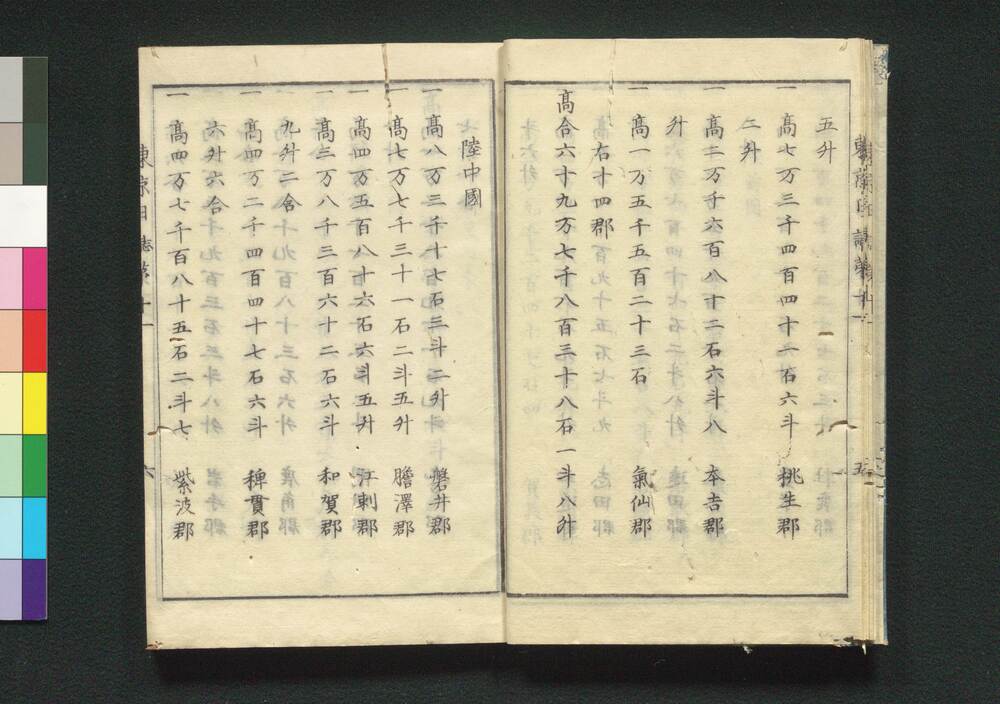 五升
一 高七万三千四百四十一石六斗 桃生郡
二升
一 高二万千六百八十二石六斗八 本吉郡
升
一 高一万五千五百二十三石 氣仙郡
右十四郡
高合六十九万七千八百三十八石一斗八升
陸中國
一 高八万三千十七石三斗二升 磐井郡
一 高七万七千三十一石二斗五升 膽澤郡
一 高四万五百八十六石六斗五升 江刺郡
一 高三万八千三百六十二石六斗 和賀郡
九升二合
一 高四万二千四百四十七石六斗 稗貫郡
六升六合
一 高四万七千百八十五石二斗七 紫波郡
六